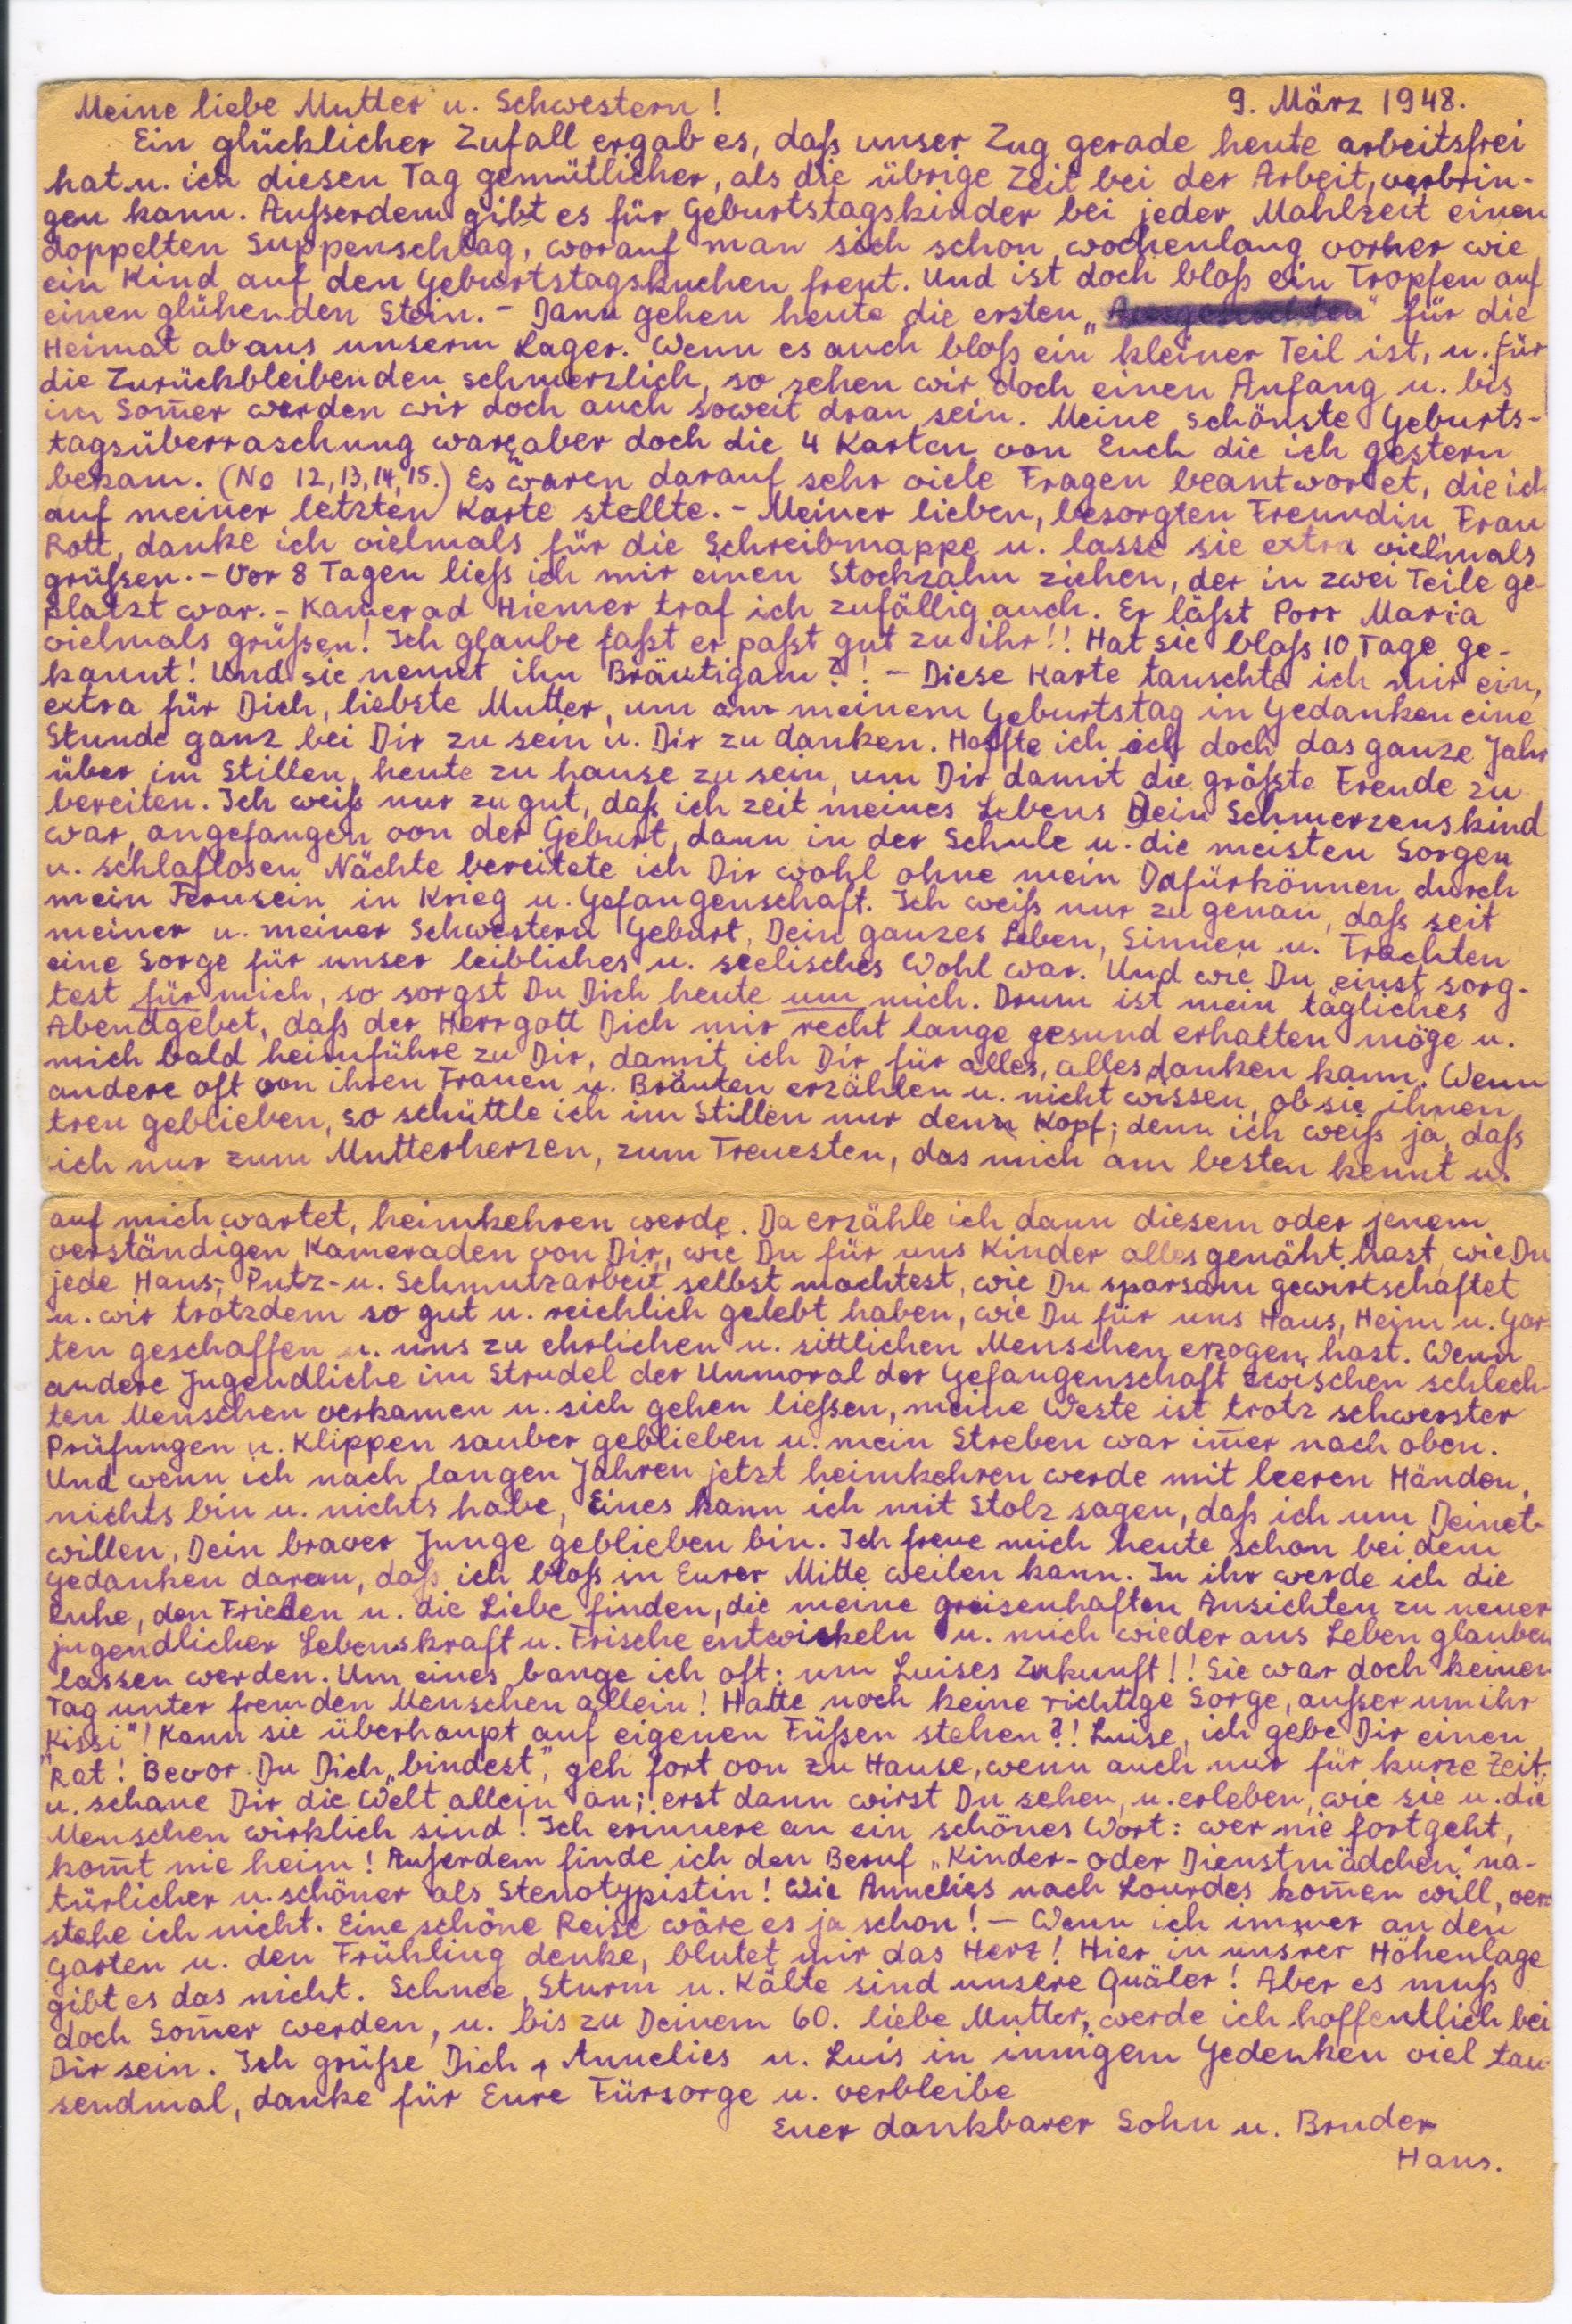 Meine liebe Mutter u. Schwestern! 9. März 1948.
Ein glücklicher Zufall ergab es, daß unser Zug gerade heute arbeitsfrei
hat u. ich diesen Tag gemütlicher, als die übrige Zeit bei der Arbeit, verbrin-
gen kann. Außerdem gibt es für Geburtstagskinder bei jeder Mahlzeit einen
doppelten Suppenschlag, worauf man sich schon wochenlang vorher wie
ein Kind auf den Geburtstagskuchen freut. Und ist doch bloß ein Tropfen auf
einen glühenden Stein. - Dann gehen heute die ersten „ " für die
Heimat ab aus unserm Lager. Wenn es auch bloß ein kleiner Teil ist, u. für
die Zurückbleibenden schmerzlich, so sehen wir doch einen Anfang u. bis
im Som̄er werden wir doch auch soweit dran sein. Meine schönste Geburts-
tagsüberraschung war aber doch die 4 Karten von Euch die ich gestern
bekam. (No 12, 13, 14, 15.) Es waren darauf sehr viele Fragen beantwortet, die ich
auf meiner letzten Karte stellte. - Meiner lieben, besorgten Freundin, Frau
Rott, danke ich vielmals für die Schreibmappe u. lasse sie extra vielmals
grüßen. - Vor 8 Tagen ließ ich mir einen Stockzahn ziehen, der in zwei Teile ge-
platzt war. - Kamerad Hiemer traf ich zufällig auch. Er läßt Porr Maria
vielmals grüßen! Ich glaube faßt er paßt gut zu ihr!! Hat sie bloß 10 Tage ge-
kannt! Und sie nennt ihn Bräutigam?! - Diese Karte tauschte ich mir ein,
extra für Dich, liebste Mutter, um an meinem Geburtstag in Gedanken eine
Stunde ganz bei Dir zu sein u. Dir zu danken. Hoffte ich ich doch das ganze Jahr
über im Stillen, heute zu hause zu sein, um Dir damit die größte Freude zu
bereiten. Ich weiß nur zu gut, daß ich zeit meines Lebens Dein Schmerzenskind
war, angefangen von der Geburt, dann in der Schule u. die meisten Sorgen
u. schlaflosen Nächte bereitete ich Dir wohl ohne mein Dafürkönnen durch
mein Fernsein in Krieg u. Gefangenschaft. Ich weiß nur zu genau, daß seit
meiner u. meiner Schwestern Geburt, Dein ganzes Leben, Sinnen u. Trachten
eine Sorge für unser leibliches u. seelisches Wohl war. Und wie Du einst sorg-
test für mich, so sorgst Du Dich heute um mich. Drum ist mein tägliches
Abendgebet, daß der Herrgott Dich mir recht lange gesund erhalten möge u.
mich bald heimführe zu Dir, damit ich Dir für alles, alles danken kann. Wenn
andere oft von ihren Frauen u. Bräuten erzählen u. nicht wissen, ob sie ihnen
treu geblieben, so schüttle ich im Stillen nur den Kopf; denn ich weiß ja, daß
ich nur zum Mutterherzen, zum Treuesten, das mich am besten kennt u.
auf mich wartet, heimkehren werde. Da erzähle ich dann diesem oder jenem
verständigen Kameraden von Dir, wie Du für uns Kinder alles genäht hast, wie Du
jede Haus-, Putz- u. Schmutzarbeit selbst machtest, wie Du sparsam gewirtschaftet
u. wir trotzdem so gut u. reichlich gelebt haben, wie Du für uns Haus, Heim u. Gar-
ten geschaffen u. uns zu ehrlichen u. sittlichen Menschen erzogen hast. Wenn
andere Jugendliche im Strudel der Unmoral der Gefangenschaft zwischen schlech-
ten Menschen verkamen u. sich gehen ließen, meine Weste ist trotz schwerster
Prüfungen u. Klippen sauber geblieben u. mein Streben war im̄er nach oben.
Und wenn ich nach langen Jahren jetzt heimkehren werde mit leeren Händen,
nichts bin u. nichts habe, Eines kann ich mit Stolz sagen, daß ich um Deinet-
willen, Dein braver Junge geblieben bin. Ich freue mich heute schon bei dem
Gedanken daran, daß ich bloß in Eurer Mitte weilen kann. In ihr werde ich die
Ruhe, den Frieden u. die Liebe finden, die meine greisenhaften Ansichten zu neuer
jugendlicher Lebenskraft u. Frische entwickeln u. mich wieder ans Leben glauben
lassen werden. Um eines bange ich oft: um Luises Zukunft!! Sie war doch keinen
Tag unter fremden Menschen allein! Hatte noch keine richtige Sorge, außer um ihr
„Kissi"! Kann sie überhaupt auf eigenen Füßen stehen?! Luise, ich gebe Dir einen
Rat! Bevor Du Dich „bindest", geh fort von zu Hause, wenn auch nur für kurze Zeit,
u. schaue Dir die Welt allein an; erst dann wirst Du sehen, u. erleben, wie sie u. die
Menschen wirklich sind! Ich erinnere an ein schönes Wort: wer nie fortgeht,
kom̄t nie heim! Außerdem finde ich den Beruf „Kinder- oder Dienstmädchen" na-
türlicher u. schöner als Stenotypistin! Wie Annelies nach Lourdes kom̄en will, ver-
stehe ich nicht. Eine schöne Reise wäre es ja schon! - Wenn ich immer an den
Garten u. den Frühling denke, blutet mir das Herz! Hier in uns'rer Höhenlage
gibt es das nicht. Schnee, Sturm u. Kälte sind unsere Quäler! Aber es muß
doch Som̄er werden, u. bis zu Deinem 60. liebe Mutter, werde ich hoffentlich bei
Dir sein. Ich grüße Dich, Annelies u. Luis in innigem Gedenken viel tau-
sendmal, danke für Eure Fürsorge u. verbleibe
Euer dankbarer Sohn u. Bruder
Hans.